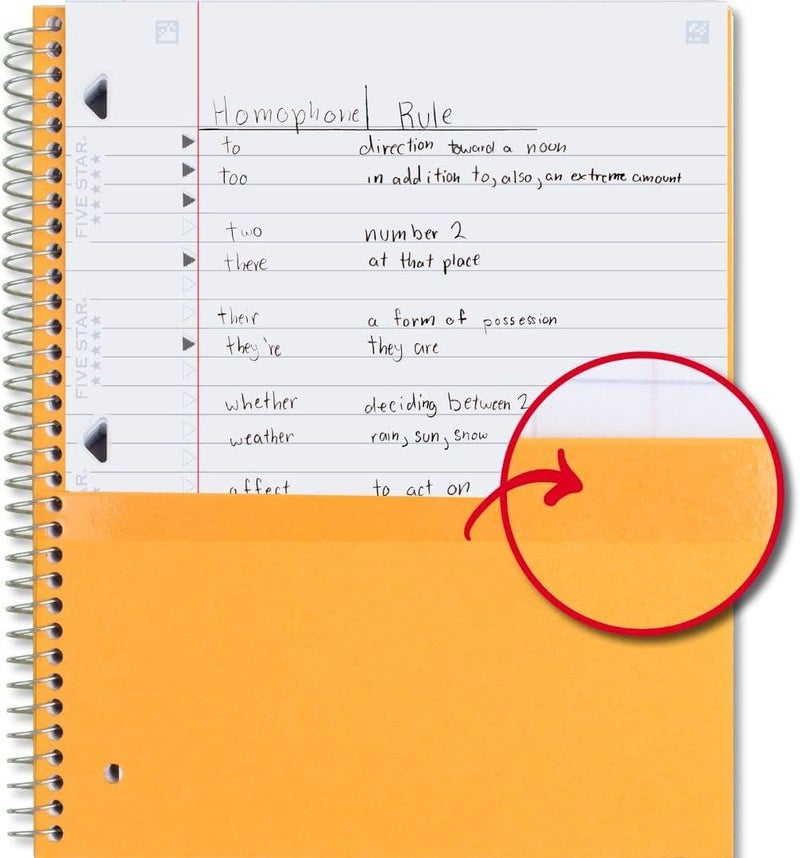 Homophone Rule
to direction toward a noun
too in addition to, also, an extreme amount
two number 2
there at that place
their a form of possession
they're they are
whether deciding between 2
weather rain, sun, snow
affect to act on
FIVE STAR.
FIVE STAR.